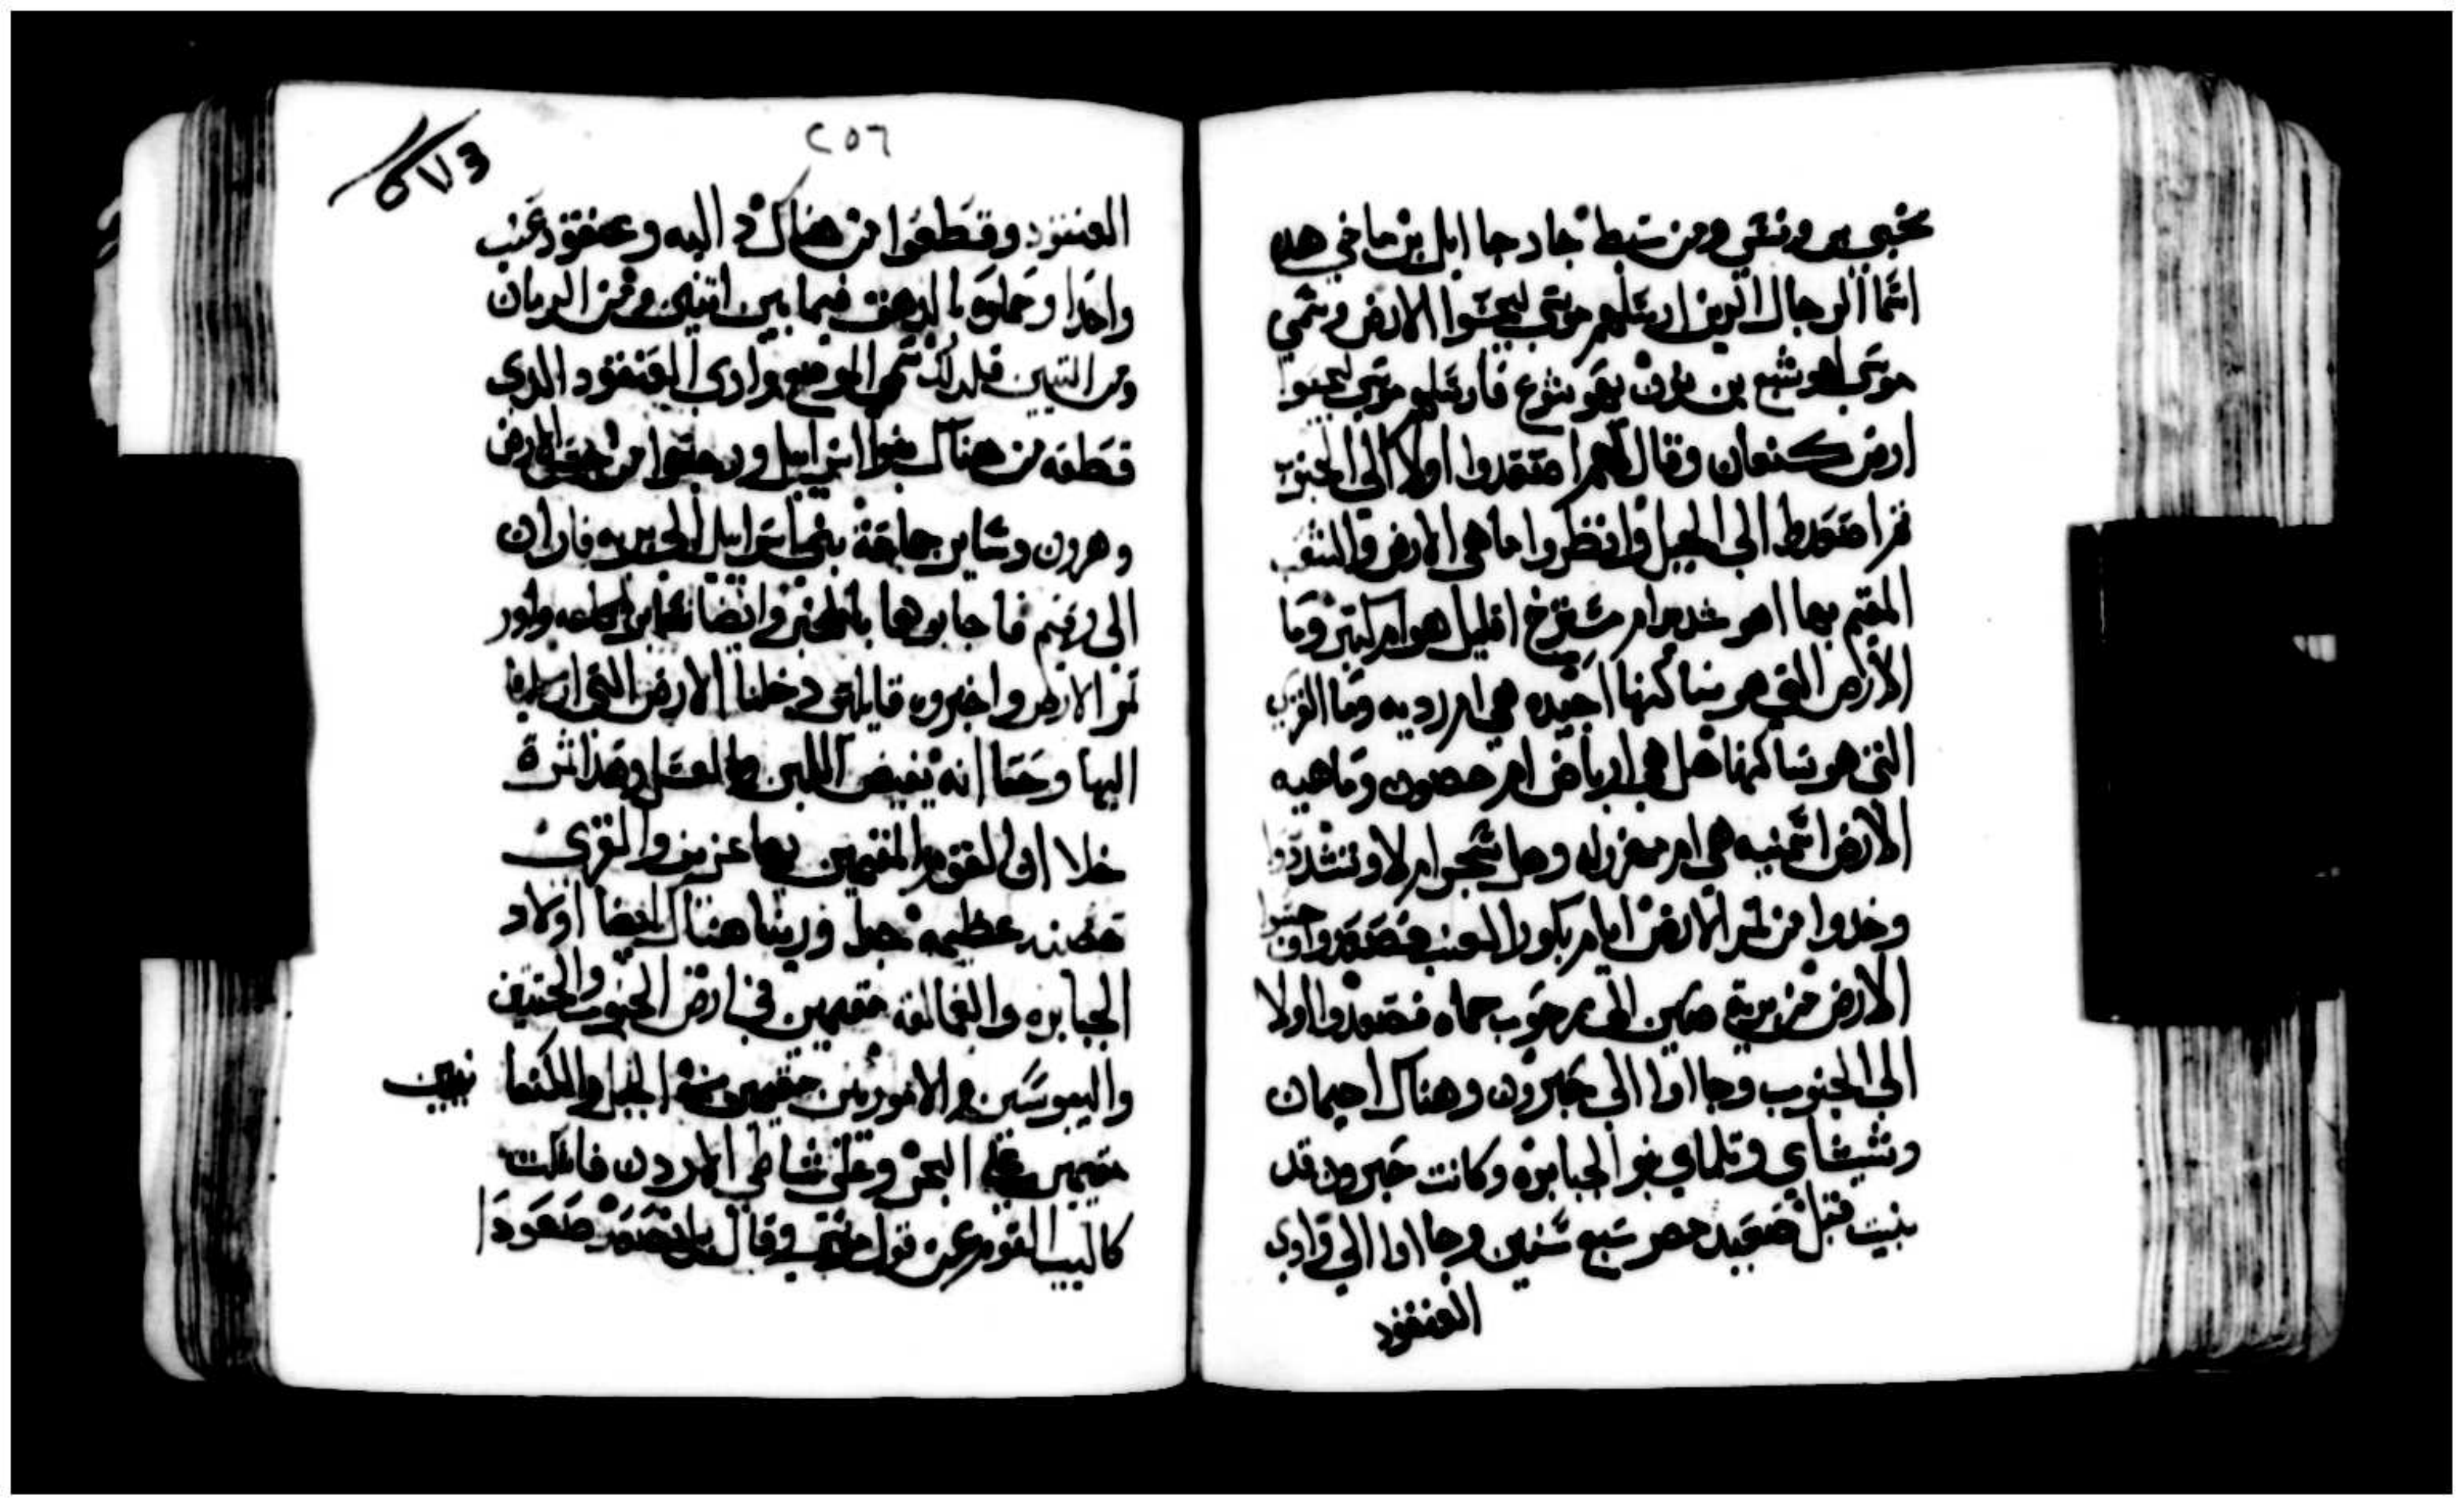 نحبي بن ونسي ومن سبط جاد جاايل بن ماخي هده
اسما الرجال الدين ارسلهم موسى ليجسوا الارض وسمى
موسى اهوشع بن نون يهوشوع فارسلهم موسى ليجسوا
ارض كنعان وقال لهم اصعدوا اولا الى الجنوب
ثم اصعدوا الى الجبل وانظروا ما هي الارض والشعب
المقيم بها اهو شديد ام مسترخ اقليل هو ام كتير وما
الارض التي هو ساكنها اجيده هي ام رديه وما القرى
التي هو ساكنها هل هي ارباض ام حصون وما هيه
الارض اسمنيه هي ام مهزوله وهل شجر ام لا وتشددوا
وخدوا من تمر الارض ايام بكور العنب فصعدوا وجسوا
الارض من برية صين الى رحوب حماه فصعدوا اولا
الى الجنوب وجااوا الى حبرون وهناك احيمان
وشيشاي وتلماي بنو الجبابره وكانت حبرون قد
بنيت قبل صعيد مصر سبع سنين وجااوا الى وادى
العنقود
٢٥٦
العنقود وقطعوا من هناك داليه وعنقود عنب
واحدا وحملوه بالدهق فيما بين اتنين ومن الرمان
ومن التين فلدلك سمي الموضع وادى العنقود الدى
قطعه من هناك بنوا اسراييل ورجعوا من جس الارض
وهرون وساير جماعة بني اسراييل الى بريه فاران
الى رقيم فاجابوهما بالخبر وايضا ساير الجماعه واور
تمر الارض واخبروه قايلين دخلنا الارض التي ارسلتنا
اليها وحقا انه تفيض اللبن والعسل وهدا تمرة
خلا ان القوم المقيمين بها عزيز والقرى
حصينه عظيمه جدا وراينا هناك ايضا اولاد
الجبابره والعمالقه مقيمين في ارض الجنوب والحتيين
واليبوسين والاموريين مقيمين في الجبل والكنعا نيين
مقيمين على البحر وعلى شاطي الاردن فاسكت
كاليب القوم عن قول موسى وقال بل نصعد صعودا